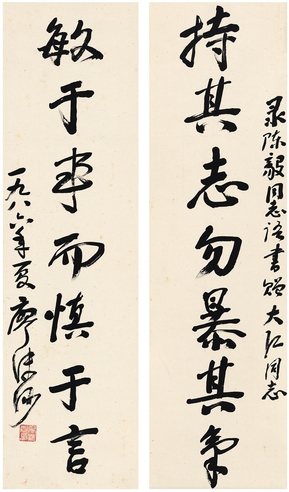 录陈毅同志语书赠大江同志
持其志勿暴其氣
敏于事而慎于言
一九八六年夏廖沫沙